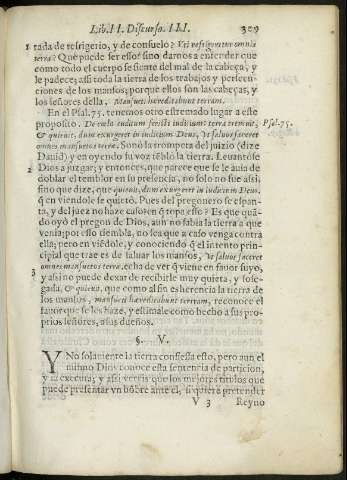 Lib. II. Discurso. III. 309
1 rada de refrigerio, y de consuelo? Vt refrigeretur omnis
terra? Que puede ser esso? sino darnos a entender que
como todo el cuerpo se siente del mal de la cabeça, y
le padece; assi toda la tierra de los trabajos y persecu-
ciones de los mansos; porque ellos son las cabeças, y
los señores della. Mansueti hæreditabunt terram.
En el Psal. 75. tenemos otro estremado lugar a este
proposito. De cœlo iudicium fecisti auditum: terra tremuit, Psal. 75.
& quieuit, dum exurgeret in iudicium Deus, vt saluos faceret
omnes mansuetos terræ. Sonò la trompeta del juizio (dize
Dauid) y en oyendo su voz tẽblò la tierra. Leuantòse
2 Dios a juzgar; y entonces, que parece que se le auia de
doblar el temblor en su presencia, no solo no fue assi,
sino que dize, que quieuit, dum exurgeret in iudicium Deus,
q̃ en viendole se quietò. Pues del pregonero se espan-
ta, y del juez no haze caso?
en q̃ topa esso? Es que quã-
do oyò el pregon de Dios, aun no sabia la tierra a que
venia; por esso tiembla, no sea que a caso venga contra
ella; pero en viẽdole, y conociendo q̃ el intento prin-
cipial que trae es de saluar los mansos, vt saluos faceret
omnes mansuetos terræ, echa de ver q̃ viene en fauor suyo,
3 y assi no puede dexar de recibirle muy quieta, y sose-
gada, & quieuit, que como al fin es herencia la tierra de
los mansos, mansueti hæreditabunt terram, reconoce el
fauor que se les haze, y estimale como hecho a sus pro-
prios señores, a sus dueños.
§. V.
Y No solamente la tierra confiessa esto, pero aun el
mismo Dios conoce esta sentencia de particion,
y la executa; y assi vereis que los mejores titulos que
puede presentar vn hõbre ante el, si quiere pretender
V 3 Reyno